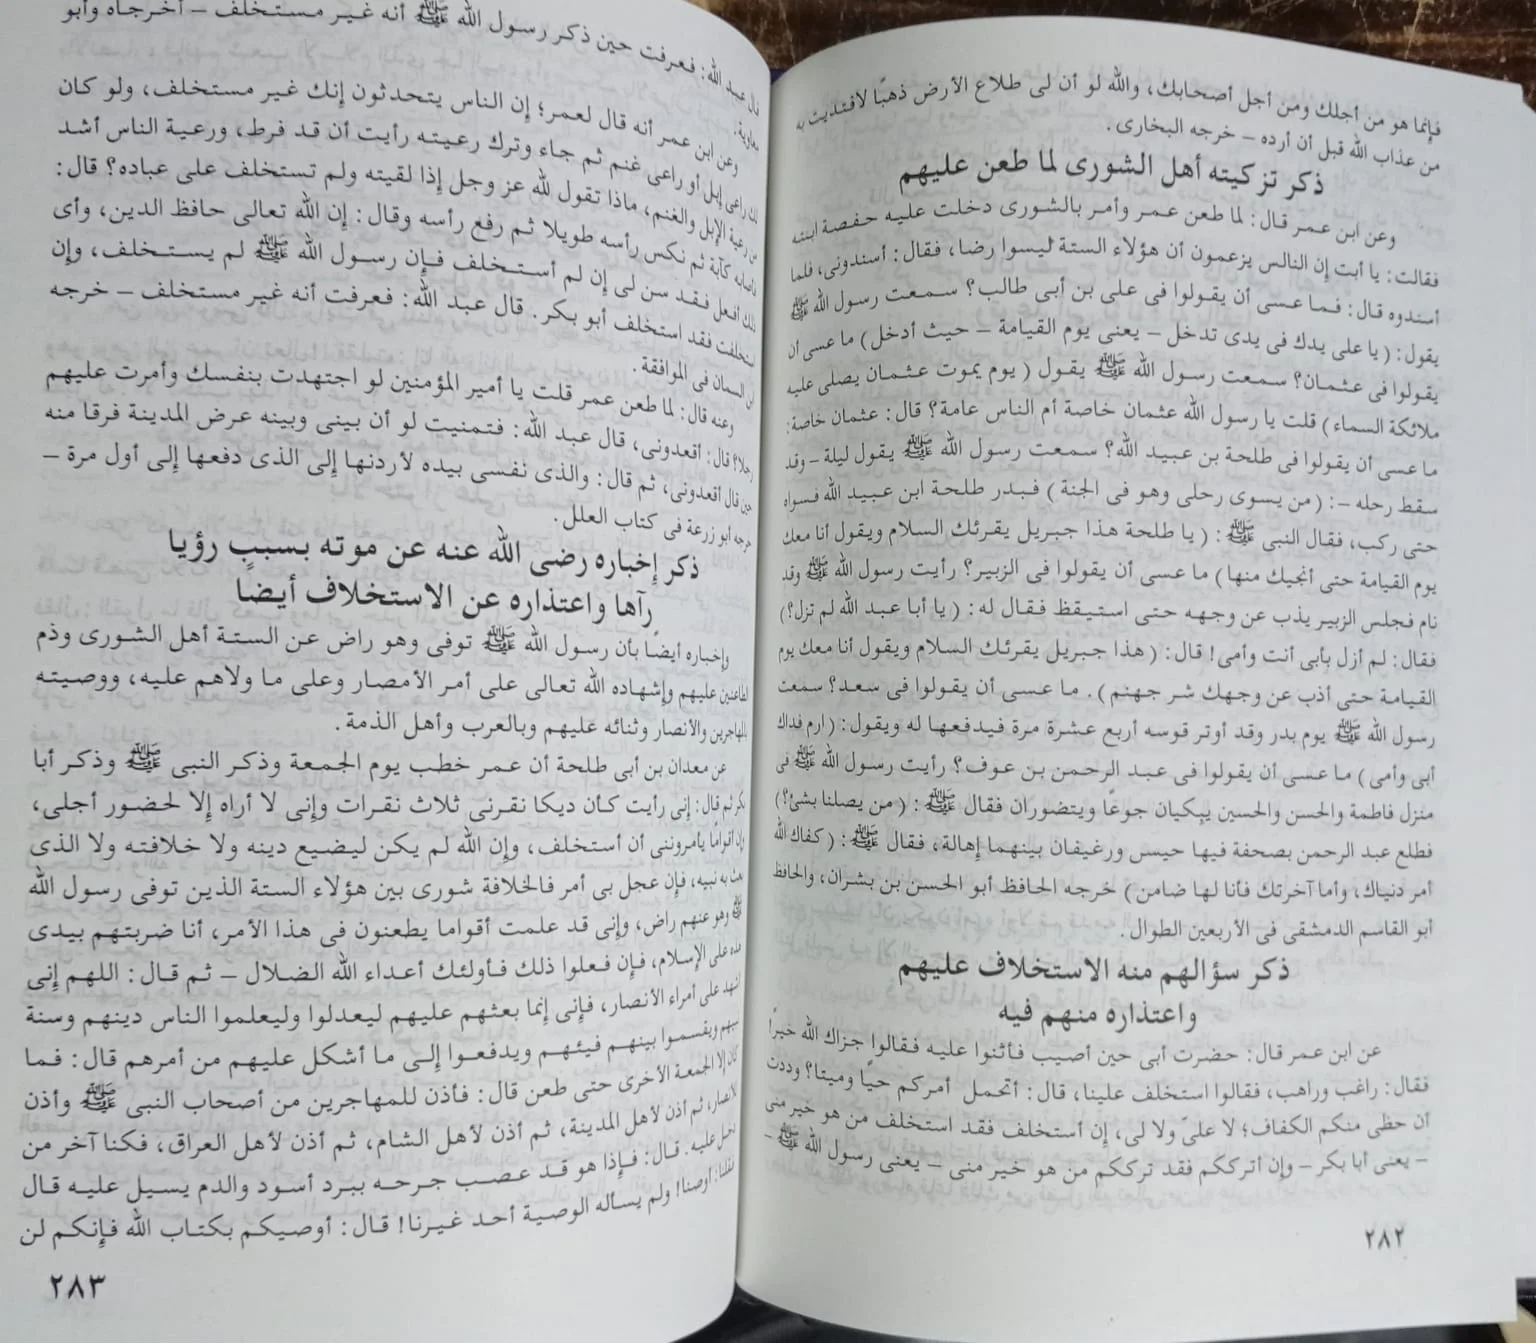 فإنما هو من أجلك ومن أجل أصحابك، والله لو أن لى طلاع الأرض ذهبًا لافتديت به
من عذاب الله قبل أن أرده – خرجه البخارى.
ذكر تزكيته أهل الشورى لما طعن عليهم
وعن ابن عمر قال: لما طعن عمر وأمر بالشورى دخلت عليه حفصة ابنته
فقالت: يا أبت إن الناس يزعمون أن هؤلاء الستة ليسوا رضا، فقال: أسندونى، فلما
أسندوه قال: فما عسى أن يقولوا فى على بن أبى طالب؟ سمعت رسول الله ﷺ
يقول: (يا على يدك فى يدى تدخل – يعنى يوم القيامة – حيث أدخل) ما عسى أن
يقولوا فى عثمان؟ سمعت رسول الله ﷺ يقول (يوم يموت عثمان يصلى عليه
ملائكة السماء) قلت يا رسول الله عثمان خاصة أم الناس عامة؟ قال: عثمان خاصة:
ما عسى أن يقولوا فى طلحة بن عبيد الله؟ سمعت رسول الله ﷺ يقول ليلة – وقد
سقط رحله –: (من يسوى رحلى وهو فى الجنة) فبدر طلحة ابن عبيد الله فسواه
حتى ركب، فقال النبى ﷺ: (يا طلحة هذا جبريل يقرئك السلام ويقول أنا معك
يوم القيامة حتى أنجيك منها) ما عسى أن يقولوا فى الزبير؟ رأيت رسول الله ﷺ وقد
نام فجلس الزبير يذب عن وجهه حتى استيقظ فقال له: (يا أبا عبد الله لم تزل؟)
فقال: لم أزل بأبى أنت وأمى! قال: (هذا جبريل يقرئك السلام ويقول أنا معك يوم
القيامة حتى أذب عن وجهك شر جهنم). ما عسى أن يقولوا فى سعد؟ سمعت
رسول الله ﷺ يوم بدر وقد أوتر قوسه أربع عشرة مرة فيدفعها له ويقول: (ارم فداك
أبى وأمى) ما عسى أن يقولوا فى عبد الرحمن بن عوف؟ رأيت رسول الله ﷺ فى
منزل فاطمة والحسن والحسين يبكيان جوعًا ويتضوران فقال ﷺ: (من يصلنا بشئ؟)
فطلع عبد الرحمن بصحفة فيها حيس ورغيفان بينهما إهالة، فقال ﷺ: (كفاك الله
أمر دنياك، وأما آخرتك فأنا لها ضامن) خرجه الحافظ أبو الحسن بن بشران، والحافظ
أبو القاسم الدمشقى فى الأربعين الطوال.
ذكر سؤالهم منه الاستخلاف عليهم
واعتذاره منهم فيه
عن ابن عمر قال: حضرت أبى حين أصيب فأثنوا عليه فقالوا جزاك الله خيرًا
فقال: راغب وراهب، فقالوا استخلف علينا، قال: أتحمل أمركم حيًا وميتا؟ وددت
أن حظى منكم الكفاف؛ لا علىّ ولا لى، إن أستخلف فقد استخلف من هو خير منى
– يعنى أبا بكر – وإن أترككم فقد ترككم من هو خير منى – يعنى رسول الله ﷺ –
٢٨٢
قال عبد الله: فعرفت حين ذكر رسول الله ﷺ أنه غير مستخلف – أخرجاه وأبو
معاوية.
وعن ابن عمر أنه قال لعمر؛ إن الناس يتحدثون إنك غير مستخلف، ولو كان
لك راعى إبل أو راعى غنم ثم جاء وترك رعيته رأيت أن قد فرط، ورعية الناس أشد
من رعية الإبل والغنم، ماذا تقول لله عز وجل إذا لقيته ولم تستخلف على عباده؟ قال:
فأصابه كآبة ثم نكس رأسه طويلا ثم رفع رأسه وقال: إن الله تعالى حافظ الدين، وأى
ذلك أفعل فقد سن لى إن لم أستخلف فإن رسول الله ﷺ لم يستخلف، وإن
استخلفت فقد استخلف أبو بكر. قال عبد الله: فعرفت أنه غير مستخلف – خرجه
ابن السمان فى الموافقة.
وعنه قال: لما طعن عمر قلت يا أمير المؤمنين لو اجتهدت بنفسك وأمرت عليهم
رجلا؟ قال: أقعدونى، قال عبد الله: فتمنيت لو أن بينى وبينه عرض المدينة فرقا منه
حين قال أقعدونى، ثم قال: والذى نفسى بيده لأردنها إلى الذى دفعها إلى أول مرة –
خرجه أبو زرعة فى كتاب العلل.
ذكر إخباره رضى الله عنه عن موته بسبب رؤيا
رآها واعتذاره عن الاستخلاف أيضًا
وإخباره أيضًا بأن رسول الله ﷺ توفى وهو راض عن الستة أهل الشورى وذم
الطاعنين عليهم وإشهاده الله تعالى على أمر الأمصار وعلى ما ولاهم عليه، ووصيته
بالمهاجرين والأنصار وثنائه عليهم وبالعرب وأهل الذمة.
عن معدان بن أبى طلحة أن عمر خطب يوم الجمعة وذكر النبى ﷺ وذكر أبا
بكر ثم قال: إنى رأيت كأن ديكا نقرنى ثلاث نقرات وإنى لا أراه إلا لحضور أجلى،
وإن أقواما يأمروننى أن أستخلف، وإن الله لم يكن ليضيع دينه ولا خلافته ولا الذى
بعث به نبيه، فإن عجل بى أمر فالخلافة شورى بين هؤلاء الستة الذين توفى رسول الله
ﷺ وهو عنهم راض، وإنى قد علمت أقواما يطعنون فى هذا الأمر، أنا ضربتهم بيدى
هذه على الإسلام، فإن فعلوا ذلك فأولئك أعداء الله الضلال – ثم قال: اللهم إنى
أشهد على أمراء الأنصار، فإنى إنما بعثهم عليهم ليعدلوا وليعلموا الناس دينهم وسنة
نبيهم ويقسموا بينهم فيئهم ويدفعوا إلى ما أشكل عليهم من أمرهم قال: فما
كان إلا الجمعة الأخرى حتى طعن قال: فأذن للمهاجرين من أصحاب النبى ﷺ وأذن
للأنصار، ثم أذن لأهل المدينة، ثم أذن لأهل الشام، ثم أذن لأهل العراق، فكنا آخر من
دخل عليه. قال: فإذا هو قد عصب جرحه ببرد أسود والدم يسيل عليه قال
فقلنا: أوصنا! ولم يسأله الوصية أحد غيرنا! قال: أوصيكم بكتاب الله فإنكم لن
٢٨٣